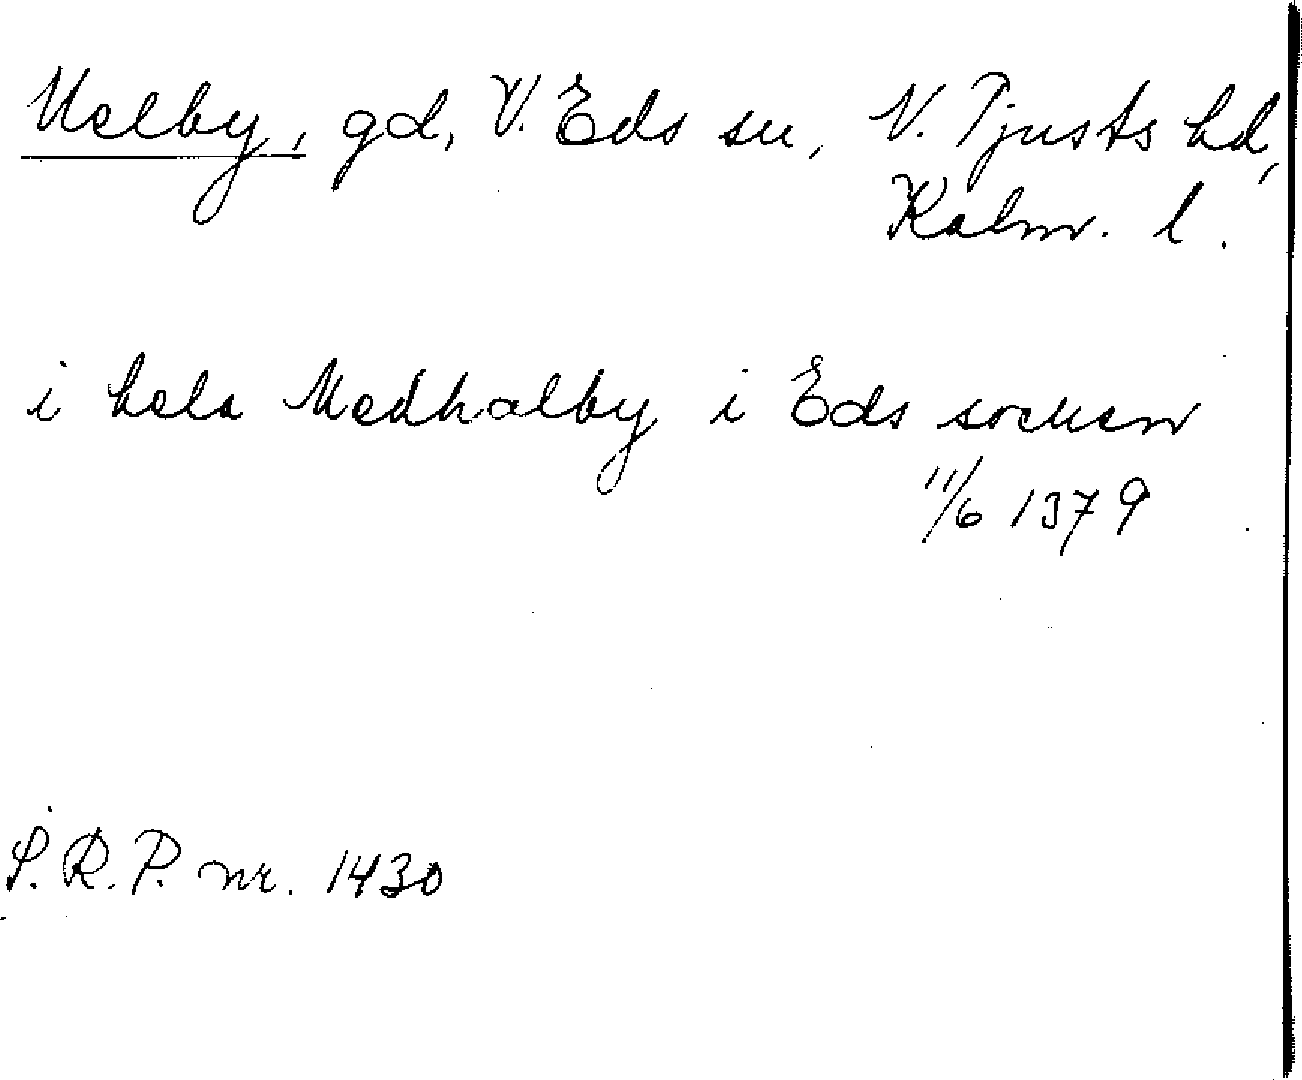 Melby, gd, V. Eds sn, N. Tjusts hd,
Kalm. l.
i hela Medhalby i Eds socken
11/6 1379
S.R.P. nr. 1430